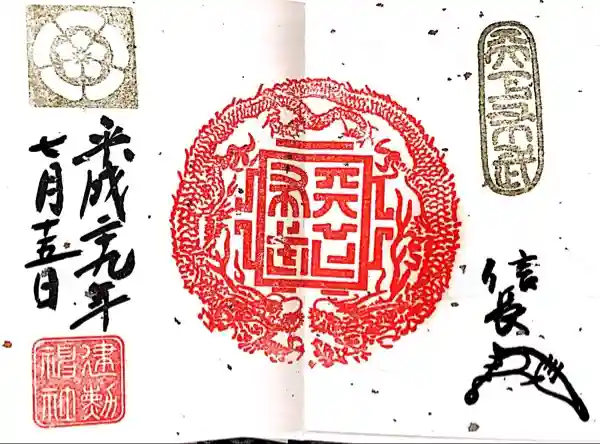 天下布武
信長
天下布武
平成二十九年
七月十五日
建勲神社